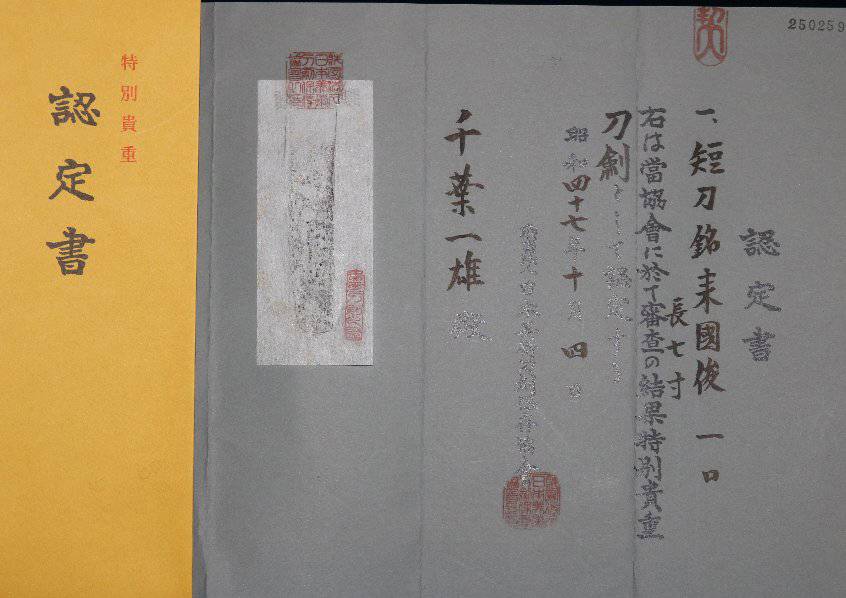 特別貴重
認定書
250259
認定書
一、短刀 銘 来國俊 一口
長七寸
右は當協會に於て審査の結果特別貴重
刀劍として認定する
昭和四十七年十月四日
財團法人日本美術刀劍保存協會
千葉一雄 殿